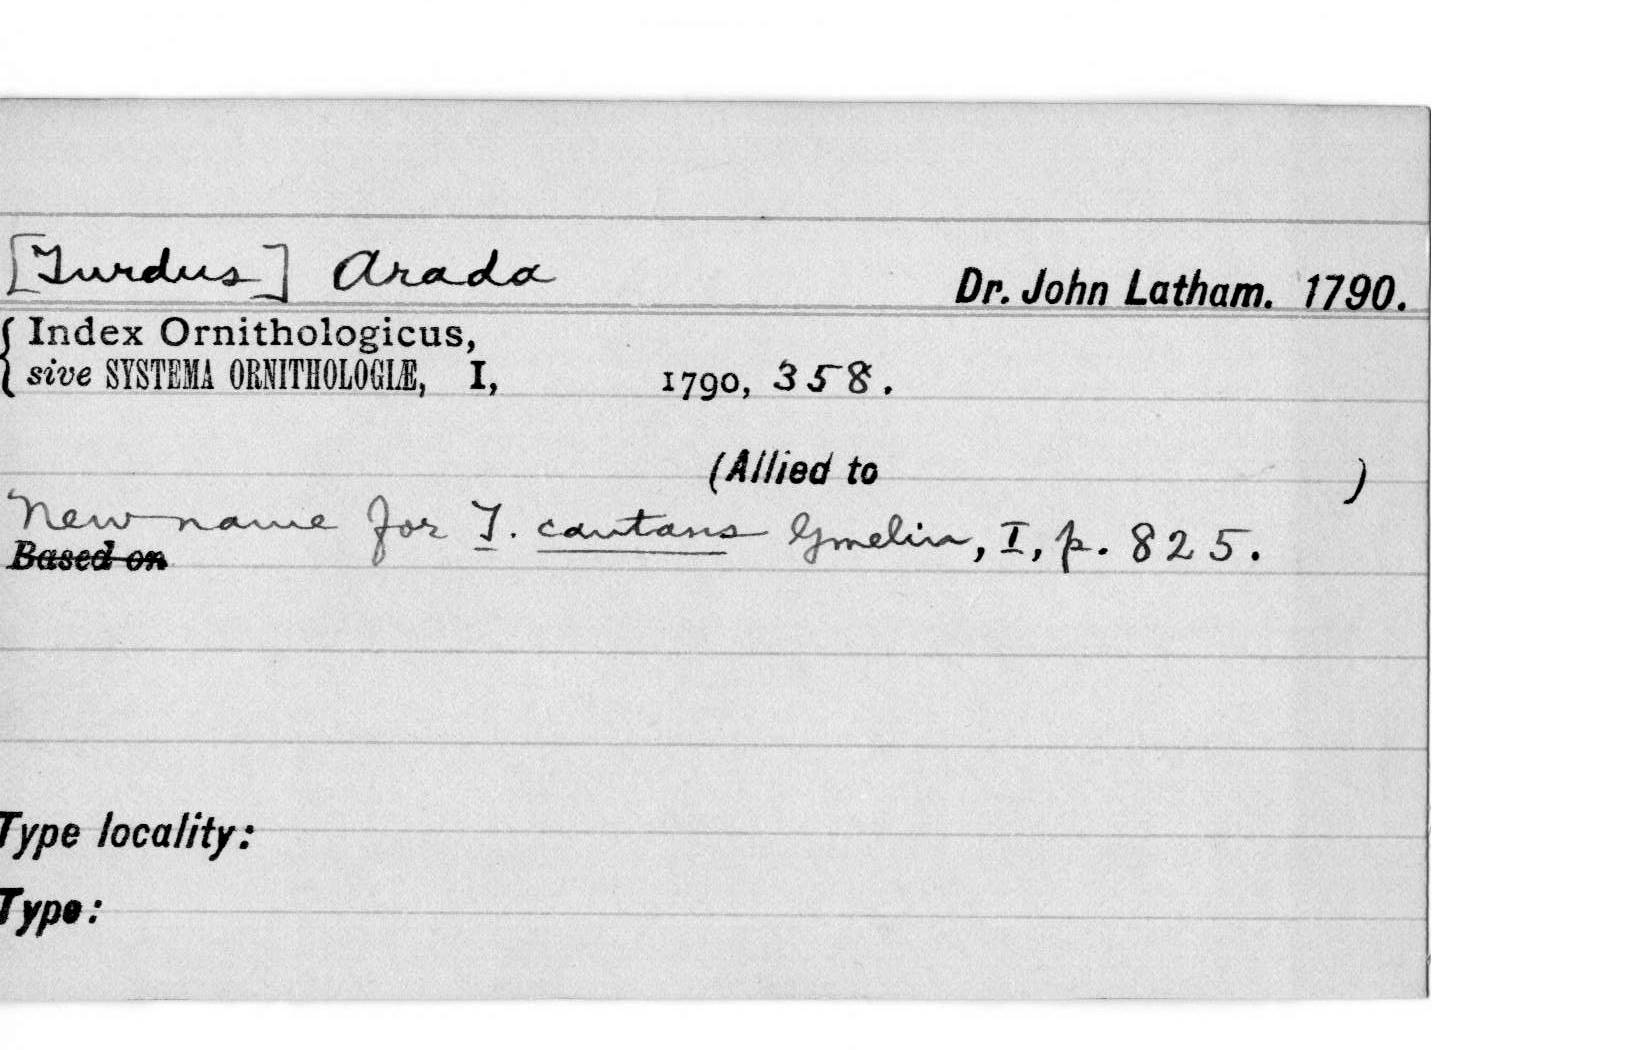 [Turdus] Arada Dr. John Latham. 1790.
{ Index Ornithologicus,
sive SYSTEMA ORNITHOLOGIÆ, I, 1790, 358.
(Allied to )
New name for T. cantans Gmelin, I, p. 825.
Based on
Type locality:
Type: